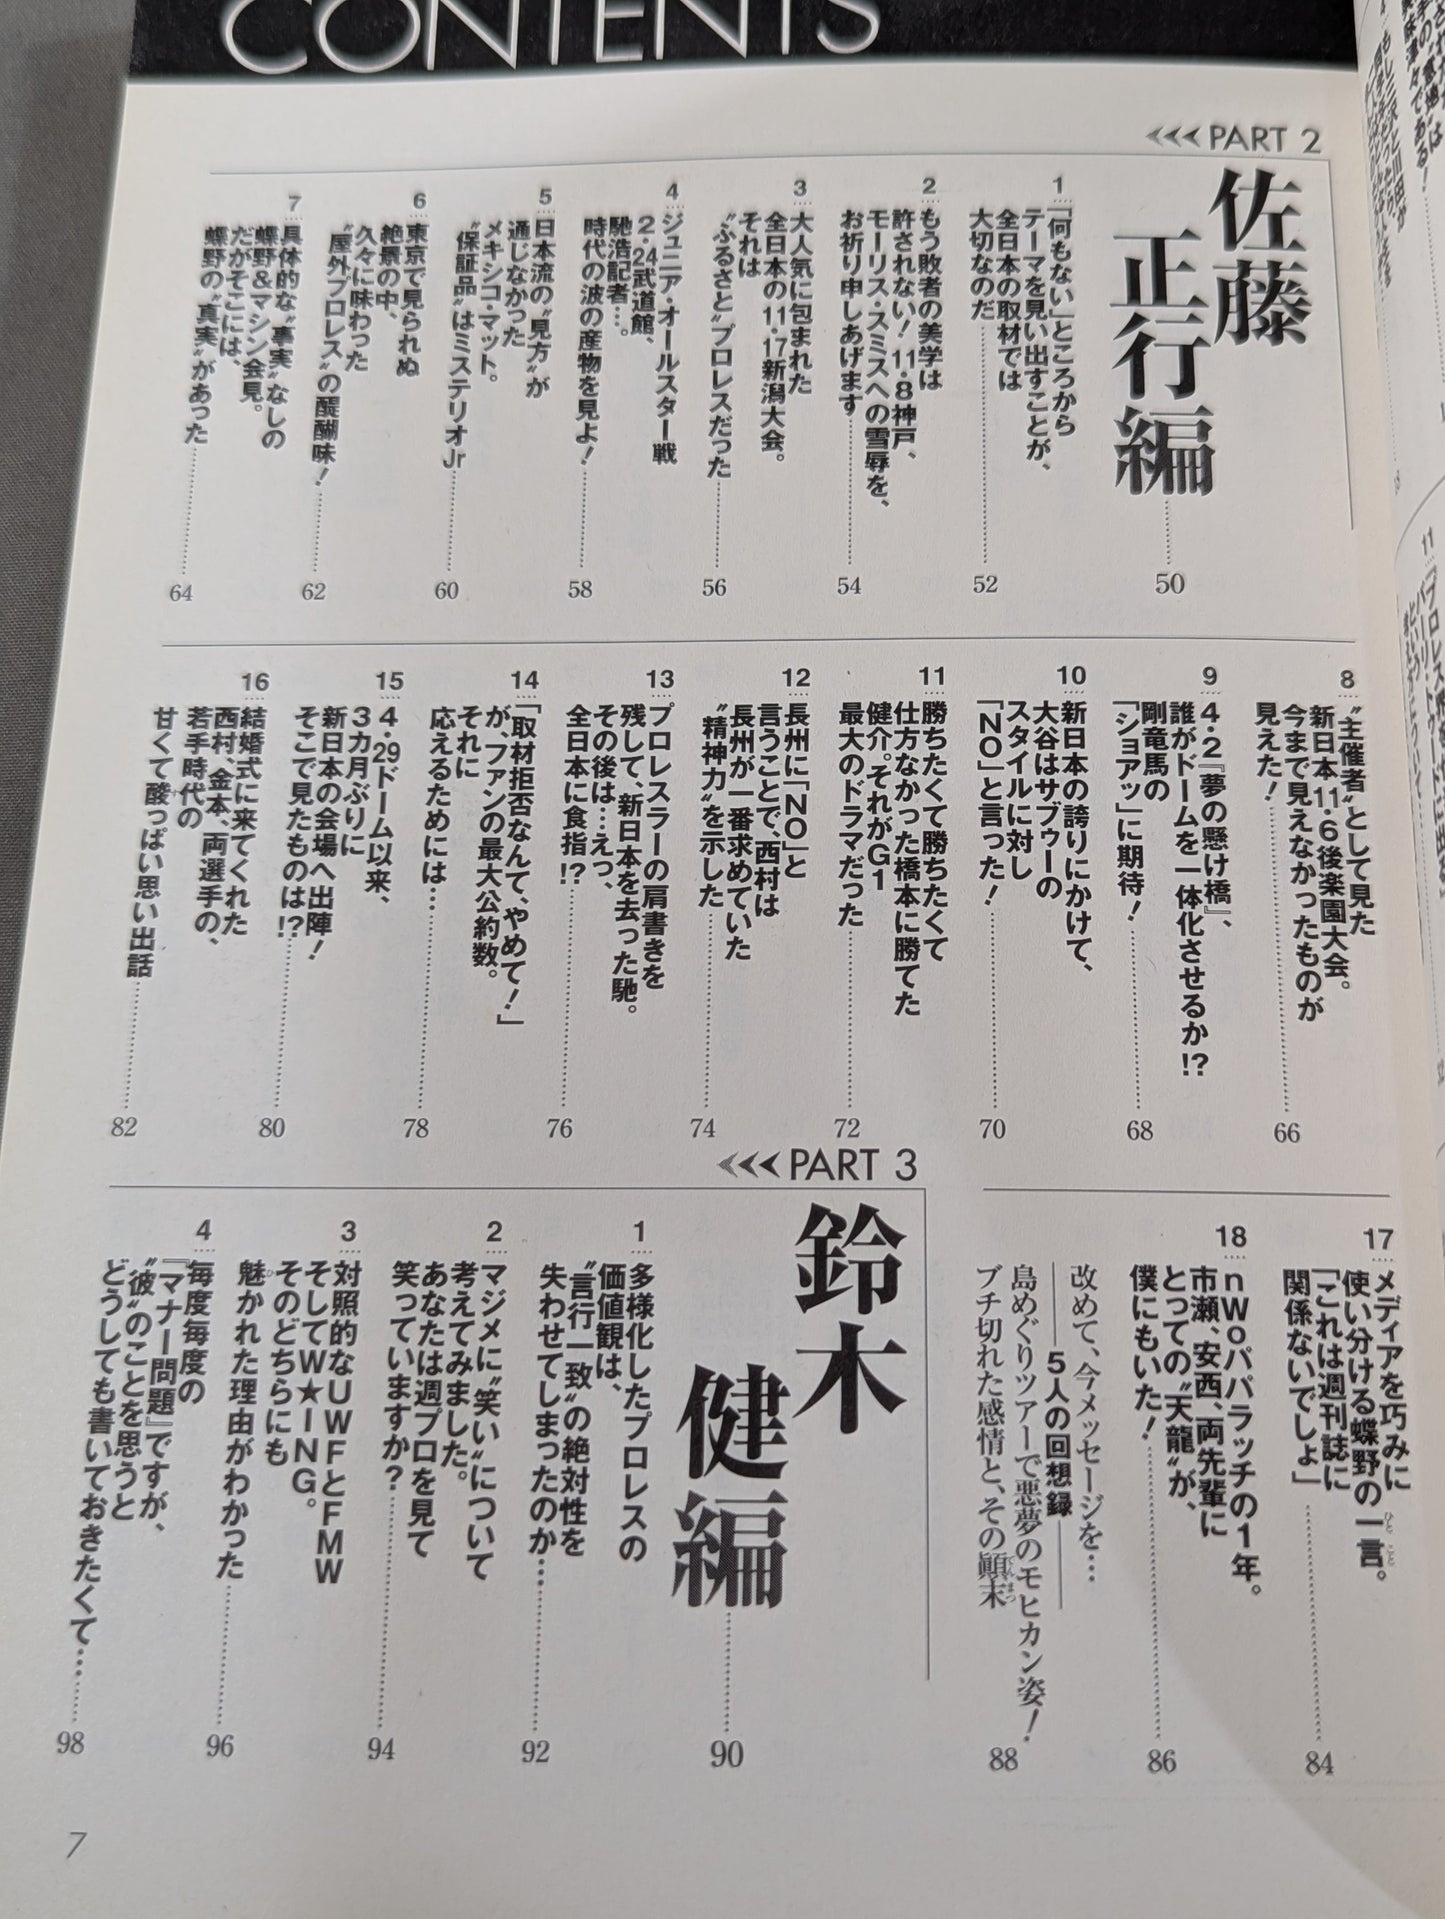 CONTENTS
PART 2
佐藤
正行編
50
1
「何もない」ところから
テーマを見い出すことが、
全日本の取材では
大切なのだ
52
2
もう敗者の美学は
許されない! 11・8神戸、
モーリス・スミスへの雪辱を、
お祈り申しあげます
54
3
大人気に包まれた
全日本の11・17新潟大会。
それは
〝ふるさと〟プロレスだった
56
4
ジュニア・オールスター戦
2・24武道館、
馳浩記者…。
時代の波の産物を見よ!
58
5
日本流の〝見方〟が
通じなかった
メキシコ・マット。
〝保証品〟はミステリオJr
60
6
東京で見られぬ
絶景の中、
久々に味わった
〝屋外プロレス〟の醍醐味!
62
7
具体的な〝事実〟なしの
蝶野&マシン会見。
だがそこには、
蝶野の〝真実〟があった
64
8
〝主催者〟として見た
新日本11・6後楽園大会。
今まで見えなかったものが
見えた!
66
9
4・2『夢の懸け橋』、
誰がドームを一体化させるか!?
剛竜馬の
「ショアッ」に期待!
68
10
新日本の誇りにかけて、
大谷はサブゥーの
スタイルに対し
「NO」と言った!
70
11
勝ちたくて勝ちたくて
仕方なかった橋本に勝てた
健介。それがG1
最大のドラマだった
72
12
長州に「NO」と
言うことで、西村は
長州が一番求めていた
〝精神力〟を示した
74
13
プロレスラーの肩書きを
残して、新日本を去った馳。
その後は…えっ、
全日本に食指!?
76
14
「取材拒否なんて、やめて!」
が、ファンの最大公約数。
それに
応えるためには…
78
15
4・29ドーム以来、
3カ月ぶりに
新日本の会場へ出陣!
そこで見たものは!?
80
16
結婚式に来てくれた
西村、金本、両選手の、
若手時代の
甘くて酸っぱい思い出話
82
17
メディアを巧みに
使い分ける蝶野の一言。
「これは週刊誌に
関係ないでしょ」
84
18
nWoパパラッチの1年。
市瀬、安西、両先輩に
とっての〝天龍〟が、
僕にもいた!
86
改めて、今メッセージを…
5人の回想録
島めぐりツアーで悪夢のモヒカン姿!
ブチ切れた感情と、その顛末
88
PART 3
鈴木
健編
90
1
多様化したプロレスの
価値観は、
〝言行一致〟の絶対性を
失わせてしまったのか…
92
2
マジメに〝笑い〟について
考えてみました。
あなたは週プロを見て
笑っていますか?
94
3
対照的なUWFとFMW
そしてW★ING。
そのどちらにも
魅かれた理由がわかった
96
4
毎度毎度の
『マナー問題』ですが、
〝彼〟のことを思うと
どうしても書いておきたくて…
98
7